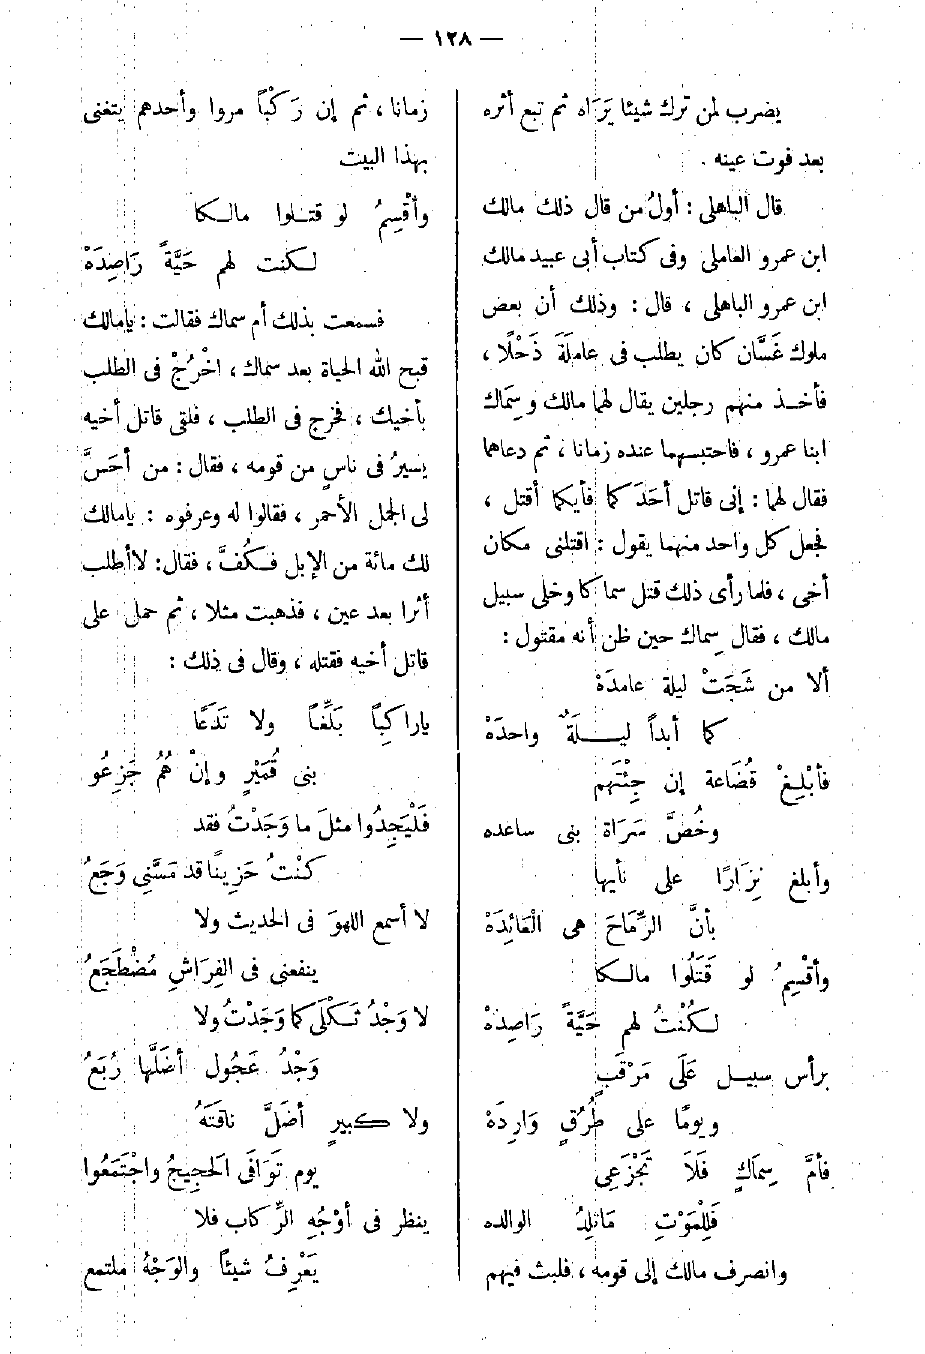 — ١٢٨ —
يضرب لمن ترك شيئا يَرَاه ثم تبع أثره
بعد فوت عينه .
قال الباهلى : أولُ من قال ذلك مالك
ابن عمرو العاملى وفى كتاب أبى عبيد مالك
ابن عمرو الباهلى ، قال : وذلك أن بعض
ملوك غَسَّان كان يطلب فى عاملَةَ ذَحْلًا ،
فأخذ منهم رجلين يقال لهما مالك وسِمَاك
ابنا عمرو ، فاحتبسهما عنده زمانا ، ثم دعاهما
فقال لهما : إنى قاتل أحَدَكما فأيكما أقتل ،
فجعل كل واحد منهما يقول : اقتلنى مكان
أخى ، فلما رأى ذلك قتل سماكا وخلى سبيل
مالك ، فقال سِماك حين ظن أنه مقتول :
ألا من شَجَتْ ليلة عامدَهْ
كما أبداً ليلَةٌ واحدَهْ
فأبْلِغْ قُضَاعة إن جِئْتَهم
وخُصَّ سَرَاة بنى ساعده
وأبلغ نِزَارًا على نأيها
بأنَّ الرِّمَاحَ هى الْعَائِدَهْ
وأقْسِمُ لو قَتَلُوا مالكا
لكُنْتُ لهم حَيَّةً رَاصِدَهْ
برأس سبيل عَلَى مَرْقَبٍ
ويومًا على طُرُقٍ وَارِدَهْ
فأمَّ سِمَاكٍ فَلَا تَجْزَعِى
فَلِلْمَوْتِ مَاتَلِدُ الوالده
وانصرف مالك إلى قومه ، فلبث فيهم
زمانا ، ثم إن رَكْبًا مروا وأحدهم يتغنى
بهذا البيت
وأقْسِمُ لو قتلوا مالكا
لكنت لهم حَيَّةً رَاصِدَهْ
فسمعت بذلك أم سماك فقالت : يامالك
قبح الله الحياة بعد سماك ، اخْرُجْ فى الطلب
بأخيك ، فخرج فى الطلب ، فلقى قاتل أخيه
يسيرُ فى ناسٍ من قومه ، فقال : من أحَسَّ
لى الجمل الأحمر ، فقالوا له وعرفوه : يامالك
لك مائة من الإبل فكُفَّ ، فقال: لاأطلب
أثرا بعد عين ، فذهبت مثلا ، ثم حمل على
قاتل أخيه فقتله ، وقال فى ذلك :
ياراكِباً بَلِّغاً ولا تَدَعًا
بنى قُمَيْرٍ وإنْ هُمُ جَزِعُو
فَلْيَجِدُوا مثلَ ما وَجَدْتُ فقد
كنْتُ حَزِينًا قد مَسَّنِى وَجَعُ
لا أسمع اللهوَ فى الحديث ولا
ينفعنى فى الفِرَاشِ مُضْطَجَعُ
لا وَجْدُ ثَكْلَى كما وَجَدْتُ ولا
وَجْدُ عَجُول أضَلَّهَا رُبَعُ
ولا كبيرٍ أضَلَّ ناقَتَهُ
يوم تَوَافَى الحَجِيجُ واجْتَمَعُوا
ينظر فى أوْجُهِ الرِّكاب فلا
يَعْرِفُ شيئاً والوَجْهُ ملتمع